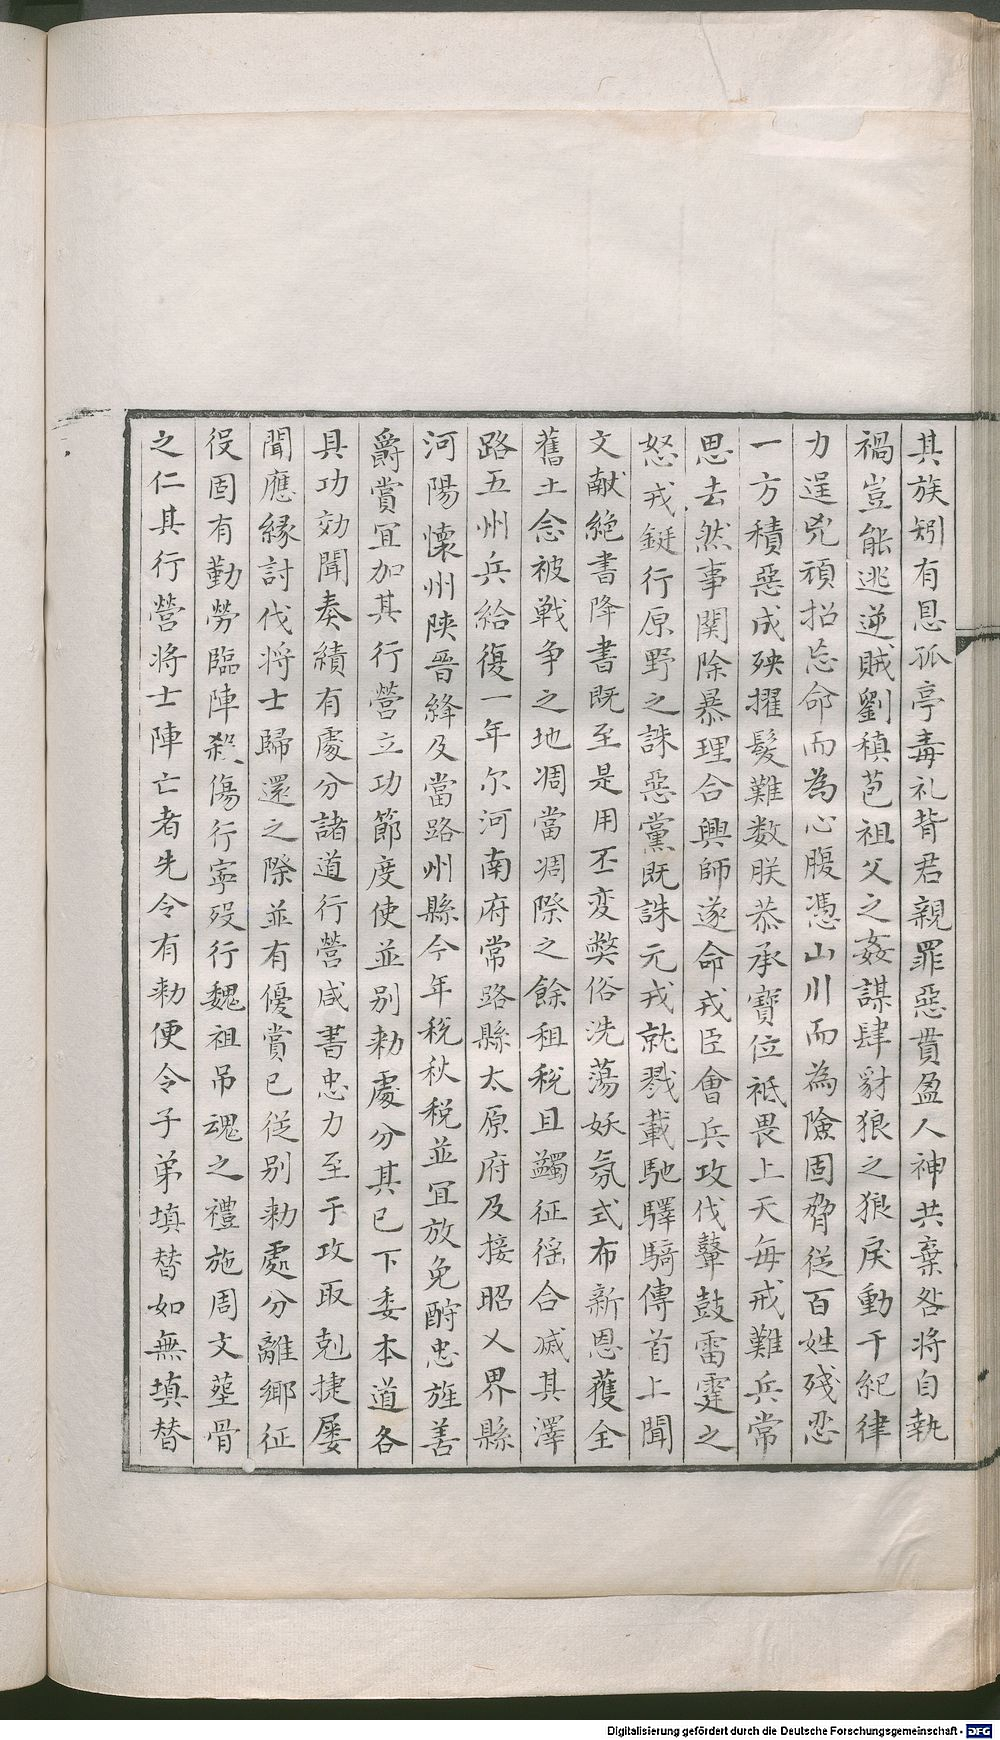 其族矧有息孤亭毒礼背君親罪惡貫盈人神共棄咎將自執
禍豈能逃逆賊劉稹苞祖父之姦謀肆豺狼之狼戾動干紀律
力逞兇頑招忘命而為心腹憑山川而為險固脅從百姓殘忍
一方積惡成殃擢髮難數朕恭承寶位祗畏上天每戒難兵常
思去然事関除暴理合興師遂命戎臣會兵攻伐鼙鼓雷霆之
怒戎鋋行原野之誅惡黨既誅元戎就戮載馳驛騎傳首上聞
文獻絶書降書既至是用丕変弊俗洗蕩妖氛式布新恩獲全
舊土念被戰争之地凋當凋際之餘租税且蠲征徭合減其澤
路五州兵給復一年尔河南府常路縣太原府及接昭乂界縣
河陽懷州陝晉絳及當路州縣今年税秋税並冝放免酧忠旌善
爵賞冝加其行營立功節度使並别勑處分其已下委本道各
具功効聞奏續有處分諸道行營咸書忠力至于攻取剋捷屡
聞應縁討伐将士歸還之際並有優賞已従别勑處分離鄉征
役固有勤勞臨陣殺傷行寧歿行魏祖吊魂之禮施周文塟骨
之仁其行營将士陣亡者先令有勑便令子弟填替如無填替
Digitalisierung gefördert durch die Deutsche Forschungsgemeinschaft - DFG